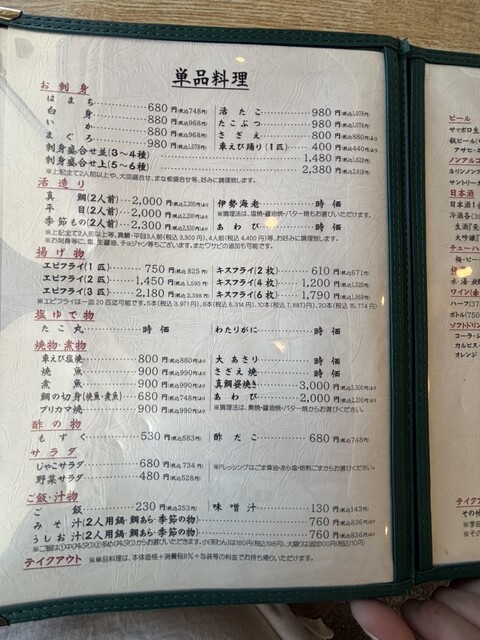 単品料理
お刺身
はまち 680円(税込748円)
白身 880円(税込968円)
いか 880円(税込968円)より
まぐろ 980円(税込1,078円)
活たこ 980円(税込1,078円)
たこぶつ 980円(税込1,078円)
さざえ 800円(税込880円)より
車えび踊り(1匹) 400円(税込440円)より
刺身盛合せ並(3〜4種) 1,480円(税込1,628円)
刺身盛合せ上(5〜6種) 2,380円(税込2,618円)
活造り
真鯛(2人前) 2,000円(税込2,200円)より
平目(2人前) 2,000円(税込2,200円)より
季節もの(2人前) 2,300円(税込2,530円)より
伊勢海老 時価
※調理法は、塩焼・醤油焼・バター焼もお選びいただけます。
あわび 時価
※上記全て2人前以上や、真鯛・平目3人前(税込3,300円)、4人前(税込4,400円)等、お好みに調理致します。
※お刺身等に、塩、生醤油、チョジャン等もございます。またワサビの追加も可能です。
揚げ物
エビフライ(1匹) 750円(税込825円)
エビフライ(2匹) 1,450円(税込1,595円)
エビフライ(3匹) 2,180円(税込2,398円)
キスフライ(2枚) 610円(税込671円)
キスフライ(4枚) 1,200円(税込1,320円)
キスフライ(6枚) 1,790円(税込1,969円)
塩ゆで物
たこ丸 時価
わたりがに 時価
焼物・煮物
車えび塩焼 800円(税込880円)より
焼魚 900円(税込990円)より
煮魚 900円(税込990円)より
鯛の切身(焼魚・煮魚) 680円(税込748円)より
ブリカマ焼 900円(税込990円)より
大あさり 時価
さざえ焼 時価
真鯛姿焼き 3,000円(税込3,300円)より
あわび 2,000円(税込2,200円)より
酢の物
もずく 530円(税込583円)
酢だこ 680円(税込748円)
サラダ
じゃこサラダ 680円(税込734円)
野菜サラダ 480円(税込528円)
ご飯・汁物
ご飯 230円(税込253円)
味噌汁 130円(税込143円)
みそ汁(2人用鍋・鯛あら・季節の物) 760円(税込836円)より
うしお汁(2人用鍋・鯛あら・季節の物) 760円(税込836円)より
テイクアウト ※単品料理は、本体価格+消費税8%+包装等の料金でお持ち帰りいただけます。
ビール
サッポロ生
瓶ビール
アサヒ
ノンアルコ
キリンノンア
サントリー
日本酒
冷酒各(30
生酒「
大吟醸「
チューハイ
梅・ピー
ワイン(赤
ハーフ(37
ボトル(750
ソフトドリン
コーラ・ジ
カルピス・
オレンジ
テイクアウ
その他